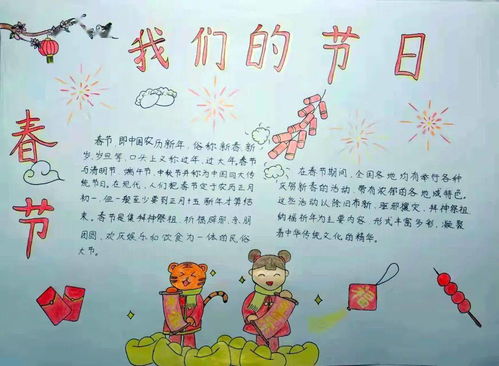 我们的节日
春节
春节,即中国农历新年,俗称新春、新
岁、岁旦等,口头上又称过年、过大年。春节
与清明节、端午节、中秋节并称为中国四大传
统节日。在现代,人们把春节定于农历正月
初一,但一般至少要到正月十五新年才算结
束。春节是集拜神祭祖、祈福辟邪、亲朋
团圆、欢庆娱乐和饮食为一体的民俗
大节。
在春节期间,全国各地均有举行各种
庆贺新春的活动,带有浓郁的各地域特色。
这些活动以除旧布新、驱邪攘灾、拜神祭祖、
纳福祈年为主要内容,形式丰富多彩,凝聚
着中华传统文化的精华。